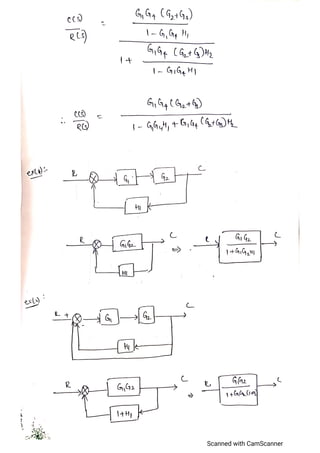 C(S) / R(S) = G₁G₄ (G₂+G₃) / 1 - G₁G₄ H₁
1 + G₁G₄ (G₂+G₃)H₂ / 1 - G₁G₄H₁
∴ C(S) / R(S) = G₁G₄(G₂+G₃) / 1 - G₁G₄H₁ + G₁G₄ (G₂+G₃)H₂
R G₁ G₂ C
H₁
R G₁G₂ C ⇒ R G₁G₂ / 1+G₁G₂H₁ C
H₁
R + G₁ G₂ C
H₁
R G₁G₂ C ⇒ R G₁G₂ / 1+G₁G₂(1+H₁) C
1+H₁
Scanned with CamScanner